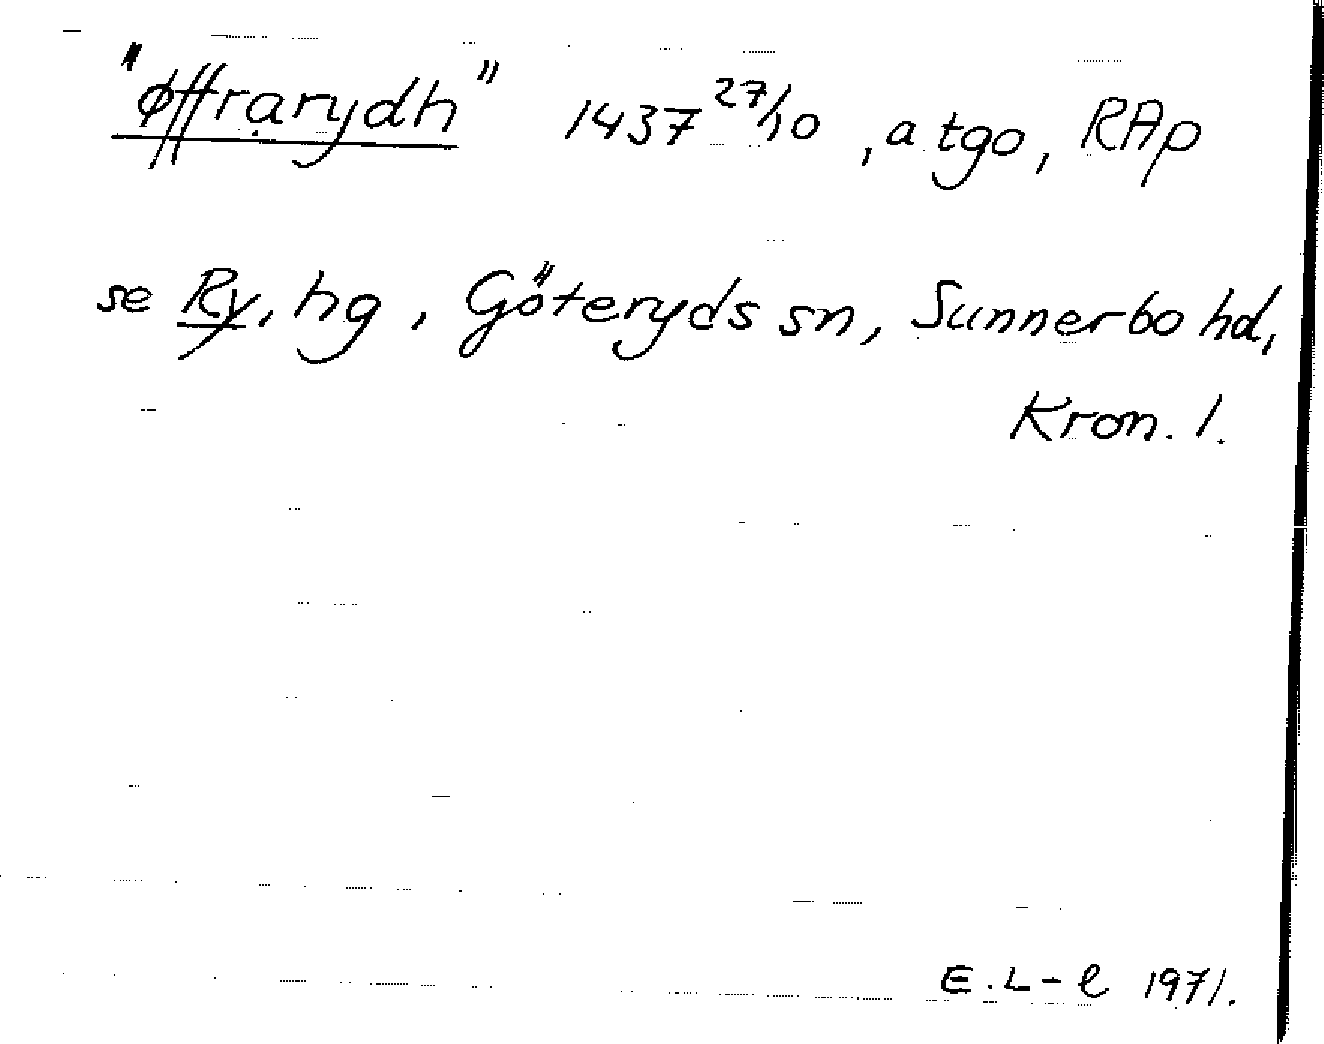 "øffrarydh" 1437 27/10, a tgo, RAp
se Ry, hg, Göteryds sn, Sunnerbo hd,
Kron. l.
E. L-l 1971.